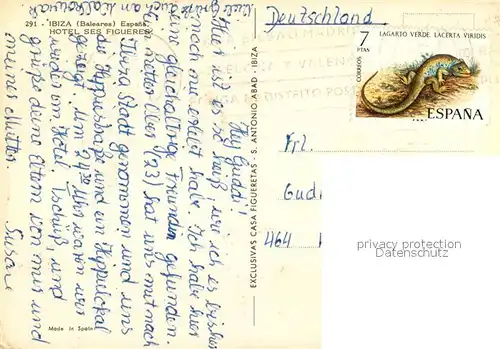 291 - IBIZA (Baleares) España
HOTEL SES FIGUERES
Hey Guddi!
Hier ist es so heiß, wie ich es bisher
noch nie erlebt habe. Ich habe hier
eine gleichaltrige Freundin gefunden.
Ihr netter (23) hat uns mit nach
Ibiza Stadt genommen und uns
die Hippieshops und ein Hippielokal
gezeigt. Um 21³⁰ Uhr waren wir
wieder im Hotel. Tschüß, und
grüße deine Eltern von mir und
meiner Mutter.
Susanne
Made in Spain
EXCLUSIVAS CASA FIGUERETAS - S. ANTONIO ABAD - IBIZA
Deutschland
7
PTAS
CORREOS
LAGARTO VERDE. LACERTA VIRIDIS
ESPAÑA
Frl.
Gudi
464
privacy protection
Datenschutz